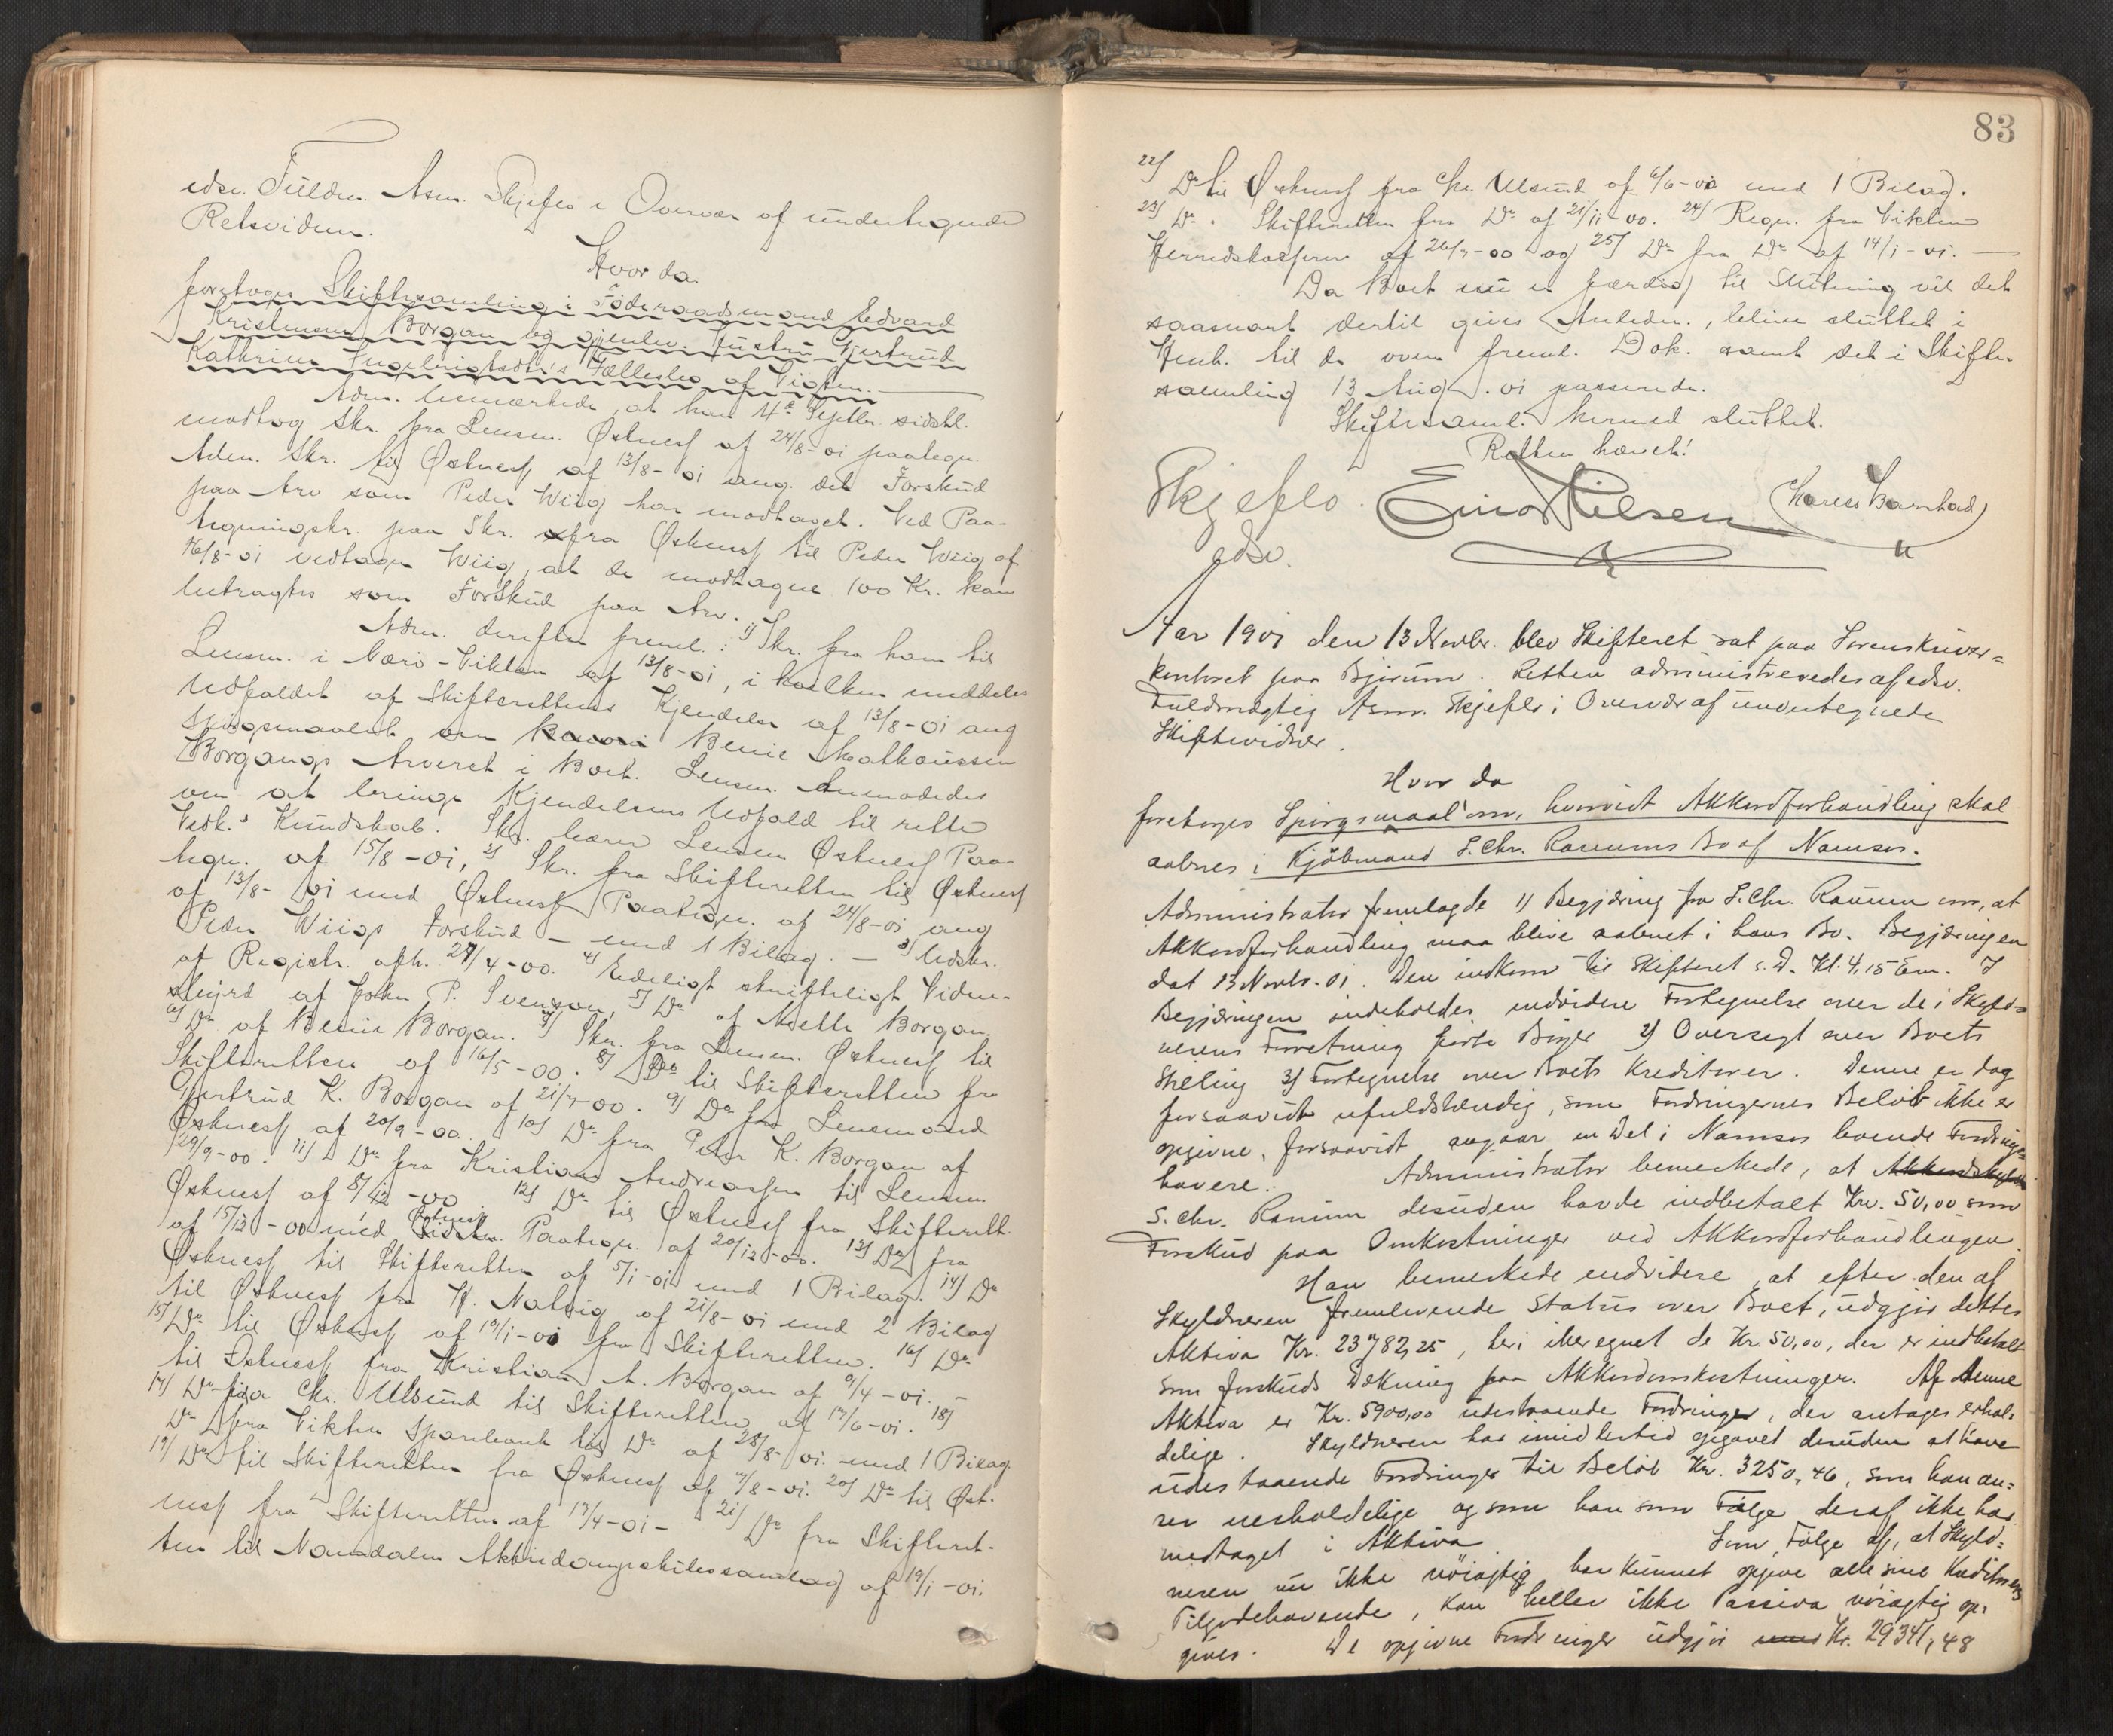 edsv. Fuldm. Asm. Skjeflo i Overvær af undertegnede
Retsvidner.
Hvor da
foretoges Skiftesamling i Föderaadsmand Edvard
Kristensen Borgan og gjenlev. Hustru Gjertrud
Kathrine Ingebrigtsdtr's Fællesbo af Vigten.
Adm. bemærkede, at han 4de Septbr. sidstl.
modtog Skr. fra Lensm. Østnesf af 24/8-01 paategn.
Adm. Skr. til Østnesf af 13/8-01 ang. det Forskud
paa Arv som Peder Wiig har modtaget. Ved Paa-
tegningskr. paa Skr. fra Østnesf til Peder Wiig af
16/8-01 vedtager Wiig, at de modtagne 100 Kr. kan
betragtes som Forskud paa Arv.
Adm. derefter freml.: 1) Skr. fra ham til
Lensm. i Nærö-Vikten af 13/8-01, i hvilken meddeles
Udfaldet af Skifterettens Kjendelse af 13/8-01 ang
Spörgsmaalet om Benie Mathaussen
Borgangs Arveret i Boet. Lensm. Anmodedes
om at bringe Kjendelsens Udfald til rette
Vedk.s Kundskab. Skr. bærer Lensm Østnesf Paa-
tegn. af 15/8-01, 2) Skr. fra Skifteretten til Østnesf
af 13/8-01 med Østnesf Paategn. af 24/8-01 ang
Peder Wiigs Forskud – med 1 Bilag. – 3) Udskr.
af Registr. afh. 27/4-00. 4) Edeligt skriftligt Vidne-
sbyrd af John P. Svenson, 5) Do af Borgan.
6) Do af Benie Borgan. 7) Skr. fra Lensm. Østnesf til
Skifteretten af 16/5-00. 8) Do til Skifteretten fra
Gjertrud K. Borgan af 21/7-00. 9) Do fra Lensmand
Østnesf af 20/9-00. 10) Do fra Peter K. Borgan af
29/9-00. 11) Do fra Kristian Andreassen til Lensm
Østnesf af 8/12-00 12) Do til Østnesf fra Skifterett.
af 15/12-00 med Østnesf Paategn. af 20/12-00. 13) Do fra
Østnesf til Skifteretten af 5/1-01 med 1 Bilag. 14) Do
til Østnesf fra H. Nalvig af 21/8-01 med 2 Bilag
15) Do til Østnesf af 19/1-01 fra Skifteretten. 16) Do
til Østnesf fra Kristian A. Borgan af 9/4-01. –
17) Do fra Chr. Ulsund til Skifteretten af 17/6-01. 18)
Do fra Vikten Sparebank til Do af 28/8-01. med 1 Bilag.
19) Do til Skifteretten fra Østnesf af 7/8-01. 20) Do til Øst-
nesf fra Skifteretten af 17/4-01 – 21) Do fra Skifteret-
ten til Namdalen Aktiedampskibssamlag af 19/1-01.
83
22) Do til Østnesf fra Chr. Ulsund af 6/6-01 med 1 Bilag.
23) Do. Skifteretten fra Do af 21/11-00. 24) Regn. fra Vikten
Herredskasserer af 26/7-00 og 25) Do fra Do af 14/1-01. —
Da Boet nu er færdig til Slutning vil det
saasnart dertil gives Anledn., blive sluttet i
Henh. til de oven freml. Dok. samt det i Skifte-
samling 13 Aug. 01 passerede.
Skiftesaml. hermed sluttet.
Retten hævet!
Skjeflo. Einar Nilsen
edsv.
Aar 1901 den 13 Novbr. blev Skifteret sat paa Sorenskriver=
kontoret paa Bjørum. Retten administreredes af edsv.
Fuldmægtig Asm. Skjeflo i Overvær af undertegnede
Skiftevidner.
Hvor da
foretoges Spörgsmaal om, hvorvidt Akkordforhandling skal
aabnes i Kjöbmand S. Chr. Ranums Bo af Namsos.
Administrator fremlagde 1) Begjæring fra S. Chr. Ranum om, at
Akkordforhandling maa blive aabnet i hans Bo. Begjæringen
dat 13 Novbr. 01. Den indkom til Skifteret s. D. Kl. 4,15 Em. I
Begjæringen indeholdes endvidere Fortegnelse over de i Skyld=
nerens Forretning förte Böger 2) Oversigt over Boets
Stilling 3) Fortegnelse over Boets Kreditorer. Denne er dog
forsaavidt ufuldstændig, som Fordringernes Belöb ikke er
opgivne, forsaavidt angaar en Del i Namsos boende Fordrings=
havere. Administrator bemerkede, at
S. Chr. Ranum desuden havde indbetalt Kr. 50,00 som
Forskud paa Omkostninger ved Akkordforhandlingen.
Han bemerkede endvidere, at efter den af
Skyldneren fremleverede Status over Boet, udgjör dettes
Aktiva Kr. 23782,25, heri iberegnet de Kr. 50,00, der er indbetalt
som forskuds Dækning paa Akkordomkostninger. Af denne
Aktiva er Kr. 5900,00 udestaaende Fordringer, der antages erhol=
delige. Skyldneren har imidlertid opgivet desuden at have
udestaaende Fordringer til Belöb Kr. 3250,46, som han an=
ser uerholdelige og som han som Fölge deraf ikke har
medtaget i Aktiva. Som Fölge af, at Skyld=
neren nu ikke nöiagtig har kunnet opgive alle sine Kreditorers
Tilgodehavende, kan heller ikke Passiva nöiagtig op=
gives. De opgivne Fordringer udgjör Kr. 29341,48